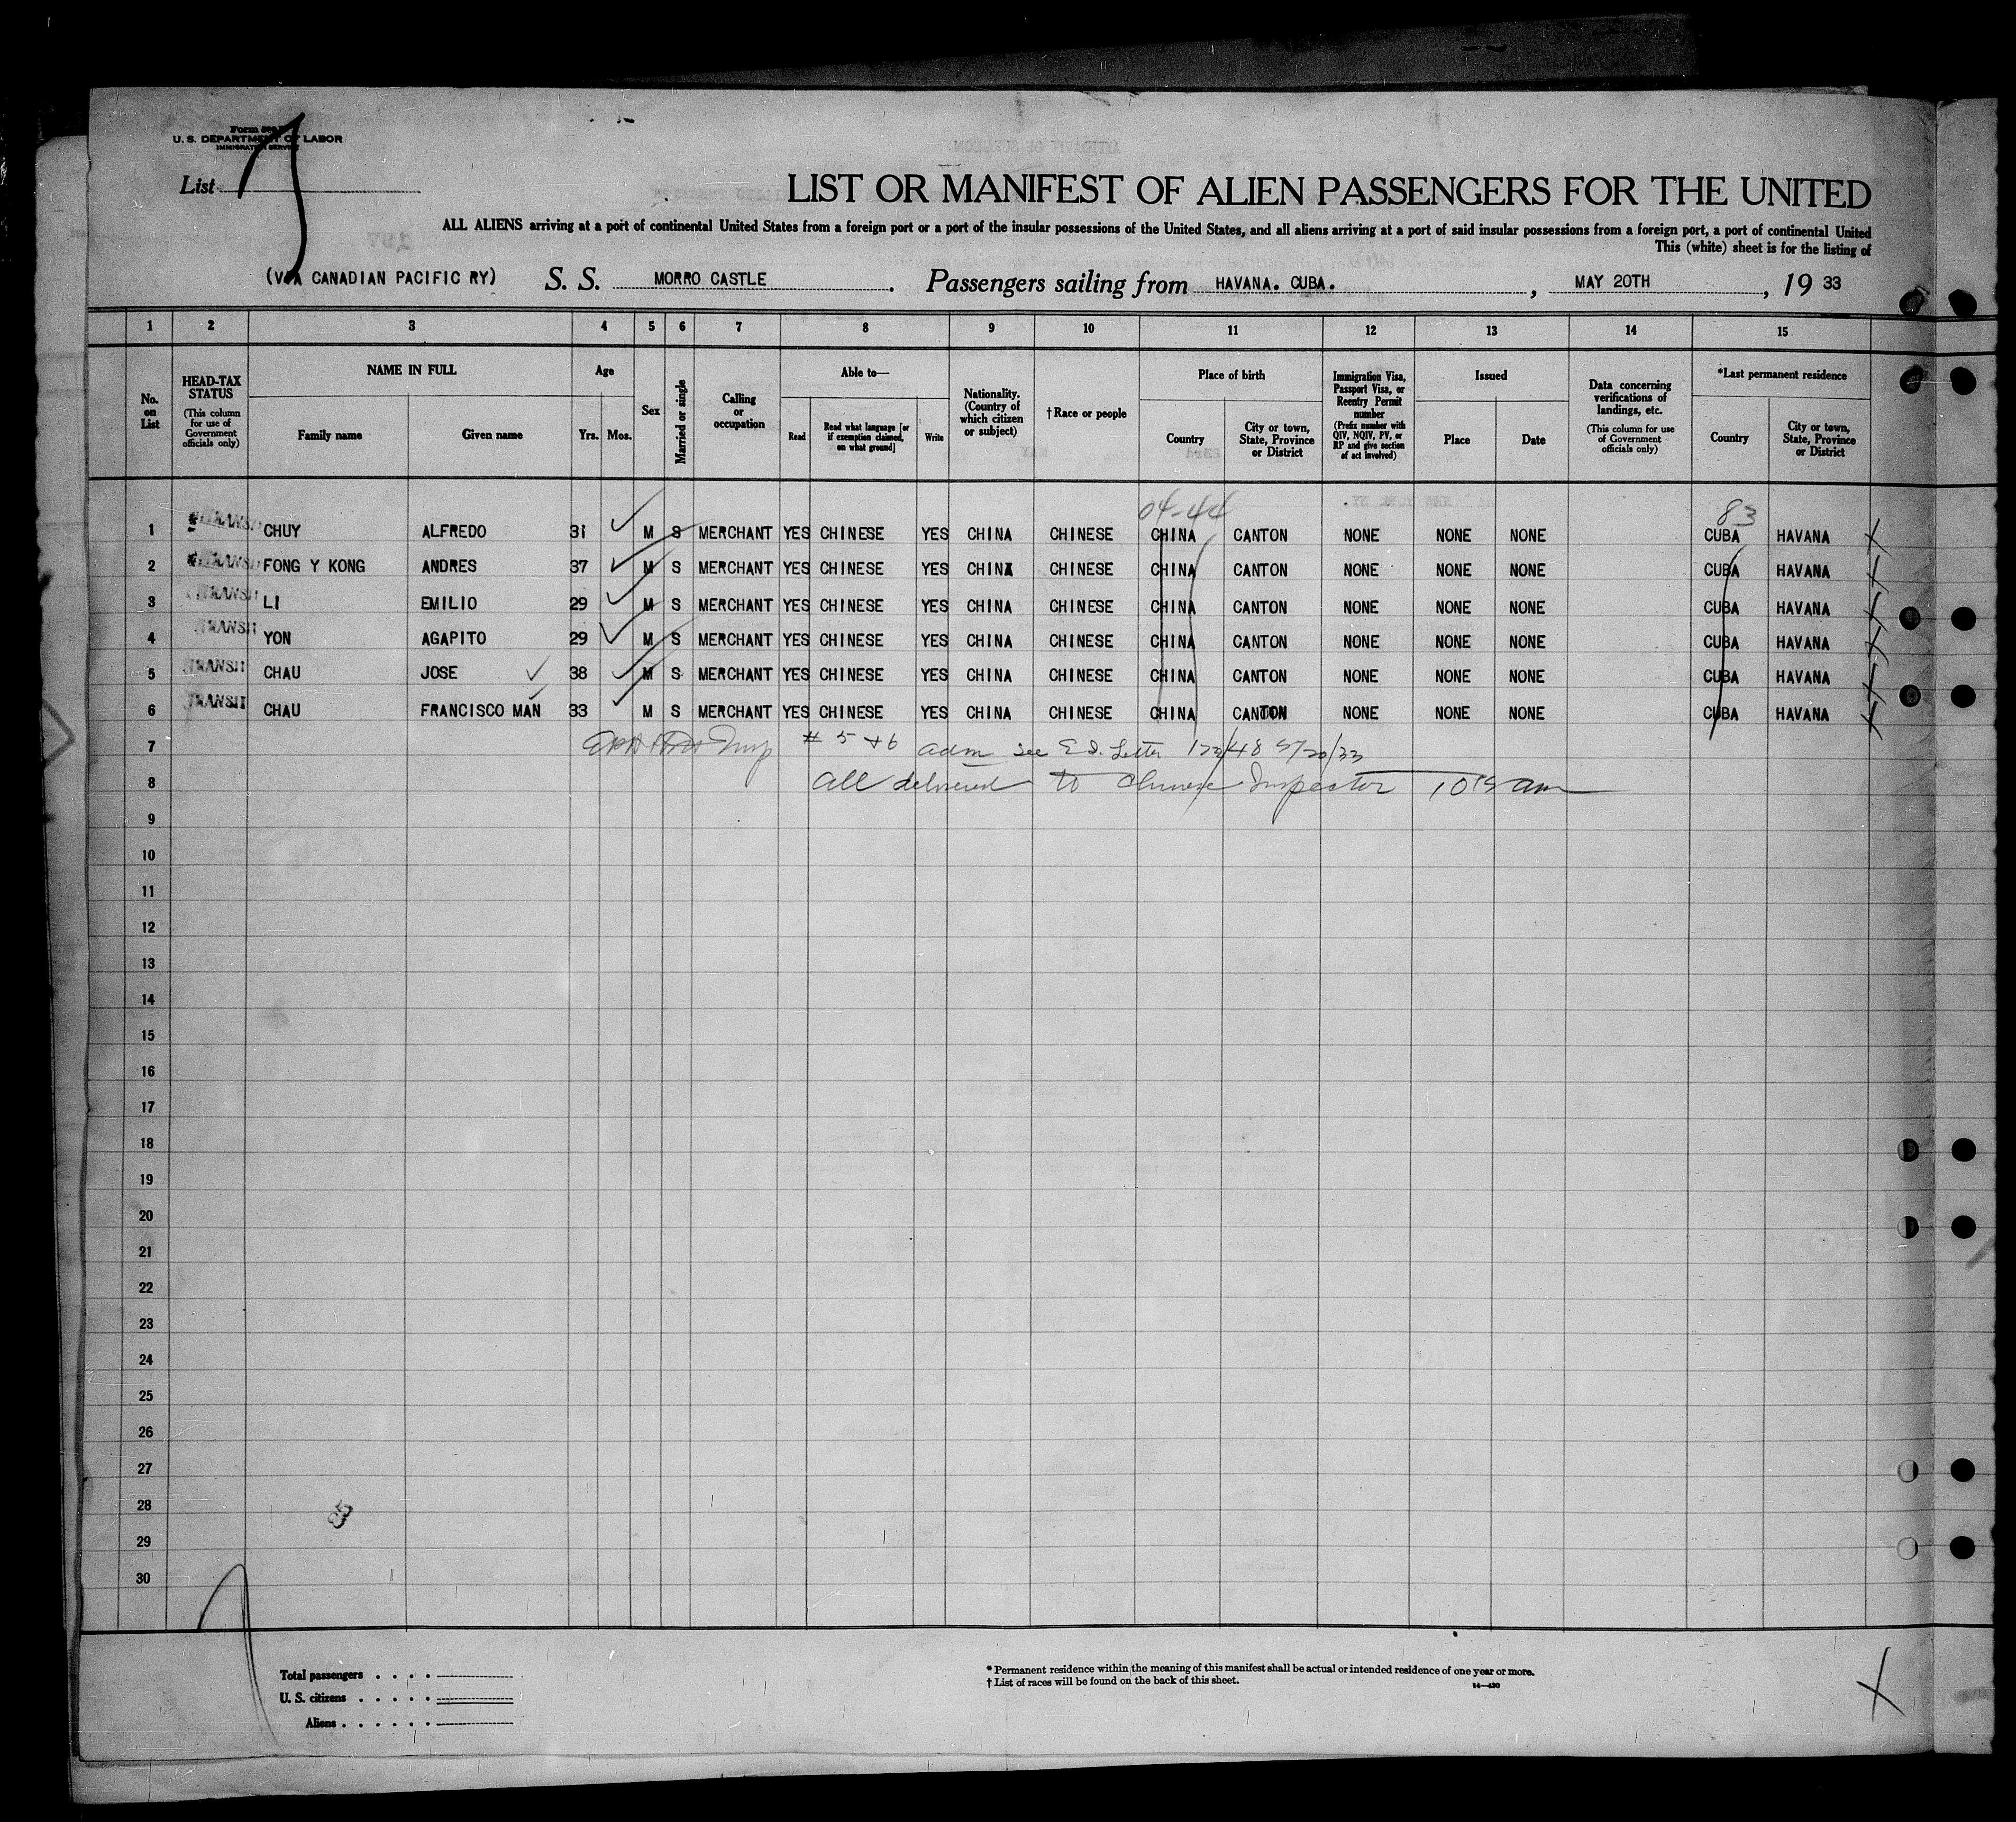 U. S. DEPARTMENT OF LABOR
IMMIGRATION SERVICE
List
LIST OR MANIFEST OF ALIEN PASSENGERS FOR THE UNITED
ALL ALIENS arriving at a port of continental United States from a foreign port or a port of the insular possessions of the United States, and all aliens arriving at a port of said insular possessions from a foreign port, a port of continental United
This (white) sheet is for the listing of
(VIA CANADIAN PACIFIC RY) S. S. MORRO CASTLE. Passengers sailing from HAVANA. CUBA. , MAY 20TH , 19 33
1 2 3 4 5 6 7 8 9 10 11 12 13 14 15
No. on List
HEAD-TAX STATUS
(This column for use of Government officials only)
NAME IN FULL
Family name Given name
Age
Yrs. Mos.
Sex
Married or single
Calling or occupation
Able to—
Read Read what language [or if exemption claimed, on what ground] Write
Nationality. (Country of which citizen or subject)
† Race or people
Place of birth
Country City or town, State, Province or District
Immigration Visa, Passport Visa, or Reentry Permit number
(Prefix number with QIV, NQIV, PV, or RP and give section of act involved)
Issued
Place Date
Data concerning verifications of landings, etc.
(This column for use of Government officials only)
*Last permanent residence
Country City or town, State, Province or District
04-44 83
1 TRANSIT CHUY ALFREDO 31 M S MERCHANT YES CHINESE YES CHINA CHINESE CHINA CANTON NONE NONE NONE CUBA HAVANA X
2 TRANSIT FONG Y KONG ANDRES 37 M S MERCHANT YES CHINESE YES CHINA CHINESE CHINA CANTON NONE NONE NONE CUBA HAVANA X
3 TRANSIT LI EMILIO 29 M S MERCHANT YES CHINESE YES CHINA CHINESE CHINA CANTON NONE NONE NONE CUBA HAVANA X
4 TRANSIT YON AGAPITO 29 M S MERCHANT YES CHINESE YES CHINA CHINESE CHINA CANTON NONE NONE NONE CUBA HAVANA X
5 TRANSIT CHAU JOSE 38 M S MERCHANT YES CHINESE YES CHINA CHINESE CHINA CANTON NONE NONE NONE CUBA HAVANA X
6 TRANSIT CHAU FRANCISCO MAN 33 M S MERCHANT YES CHINESE YES CHINA CHINESE CHINA CANTON NONE NONE NONE CUBA HAVANA X
7 Insp # 5 + 6 adm see Letter
8 all delivered to Chinese Inspector 10 15 am
9
10
11
12
13
14
15
16
17
18
19
20
21
22
23
24
25
26
27
28
29
30
Total passengers . . . .
U. S. citizens . . . . .
Aliens . . . . . .
* Permanent residence within the meaning of this manifest shall be actual or intended residence of one year or more.
† List of races will be found on the back of this sheet.
14—420
X